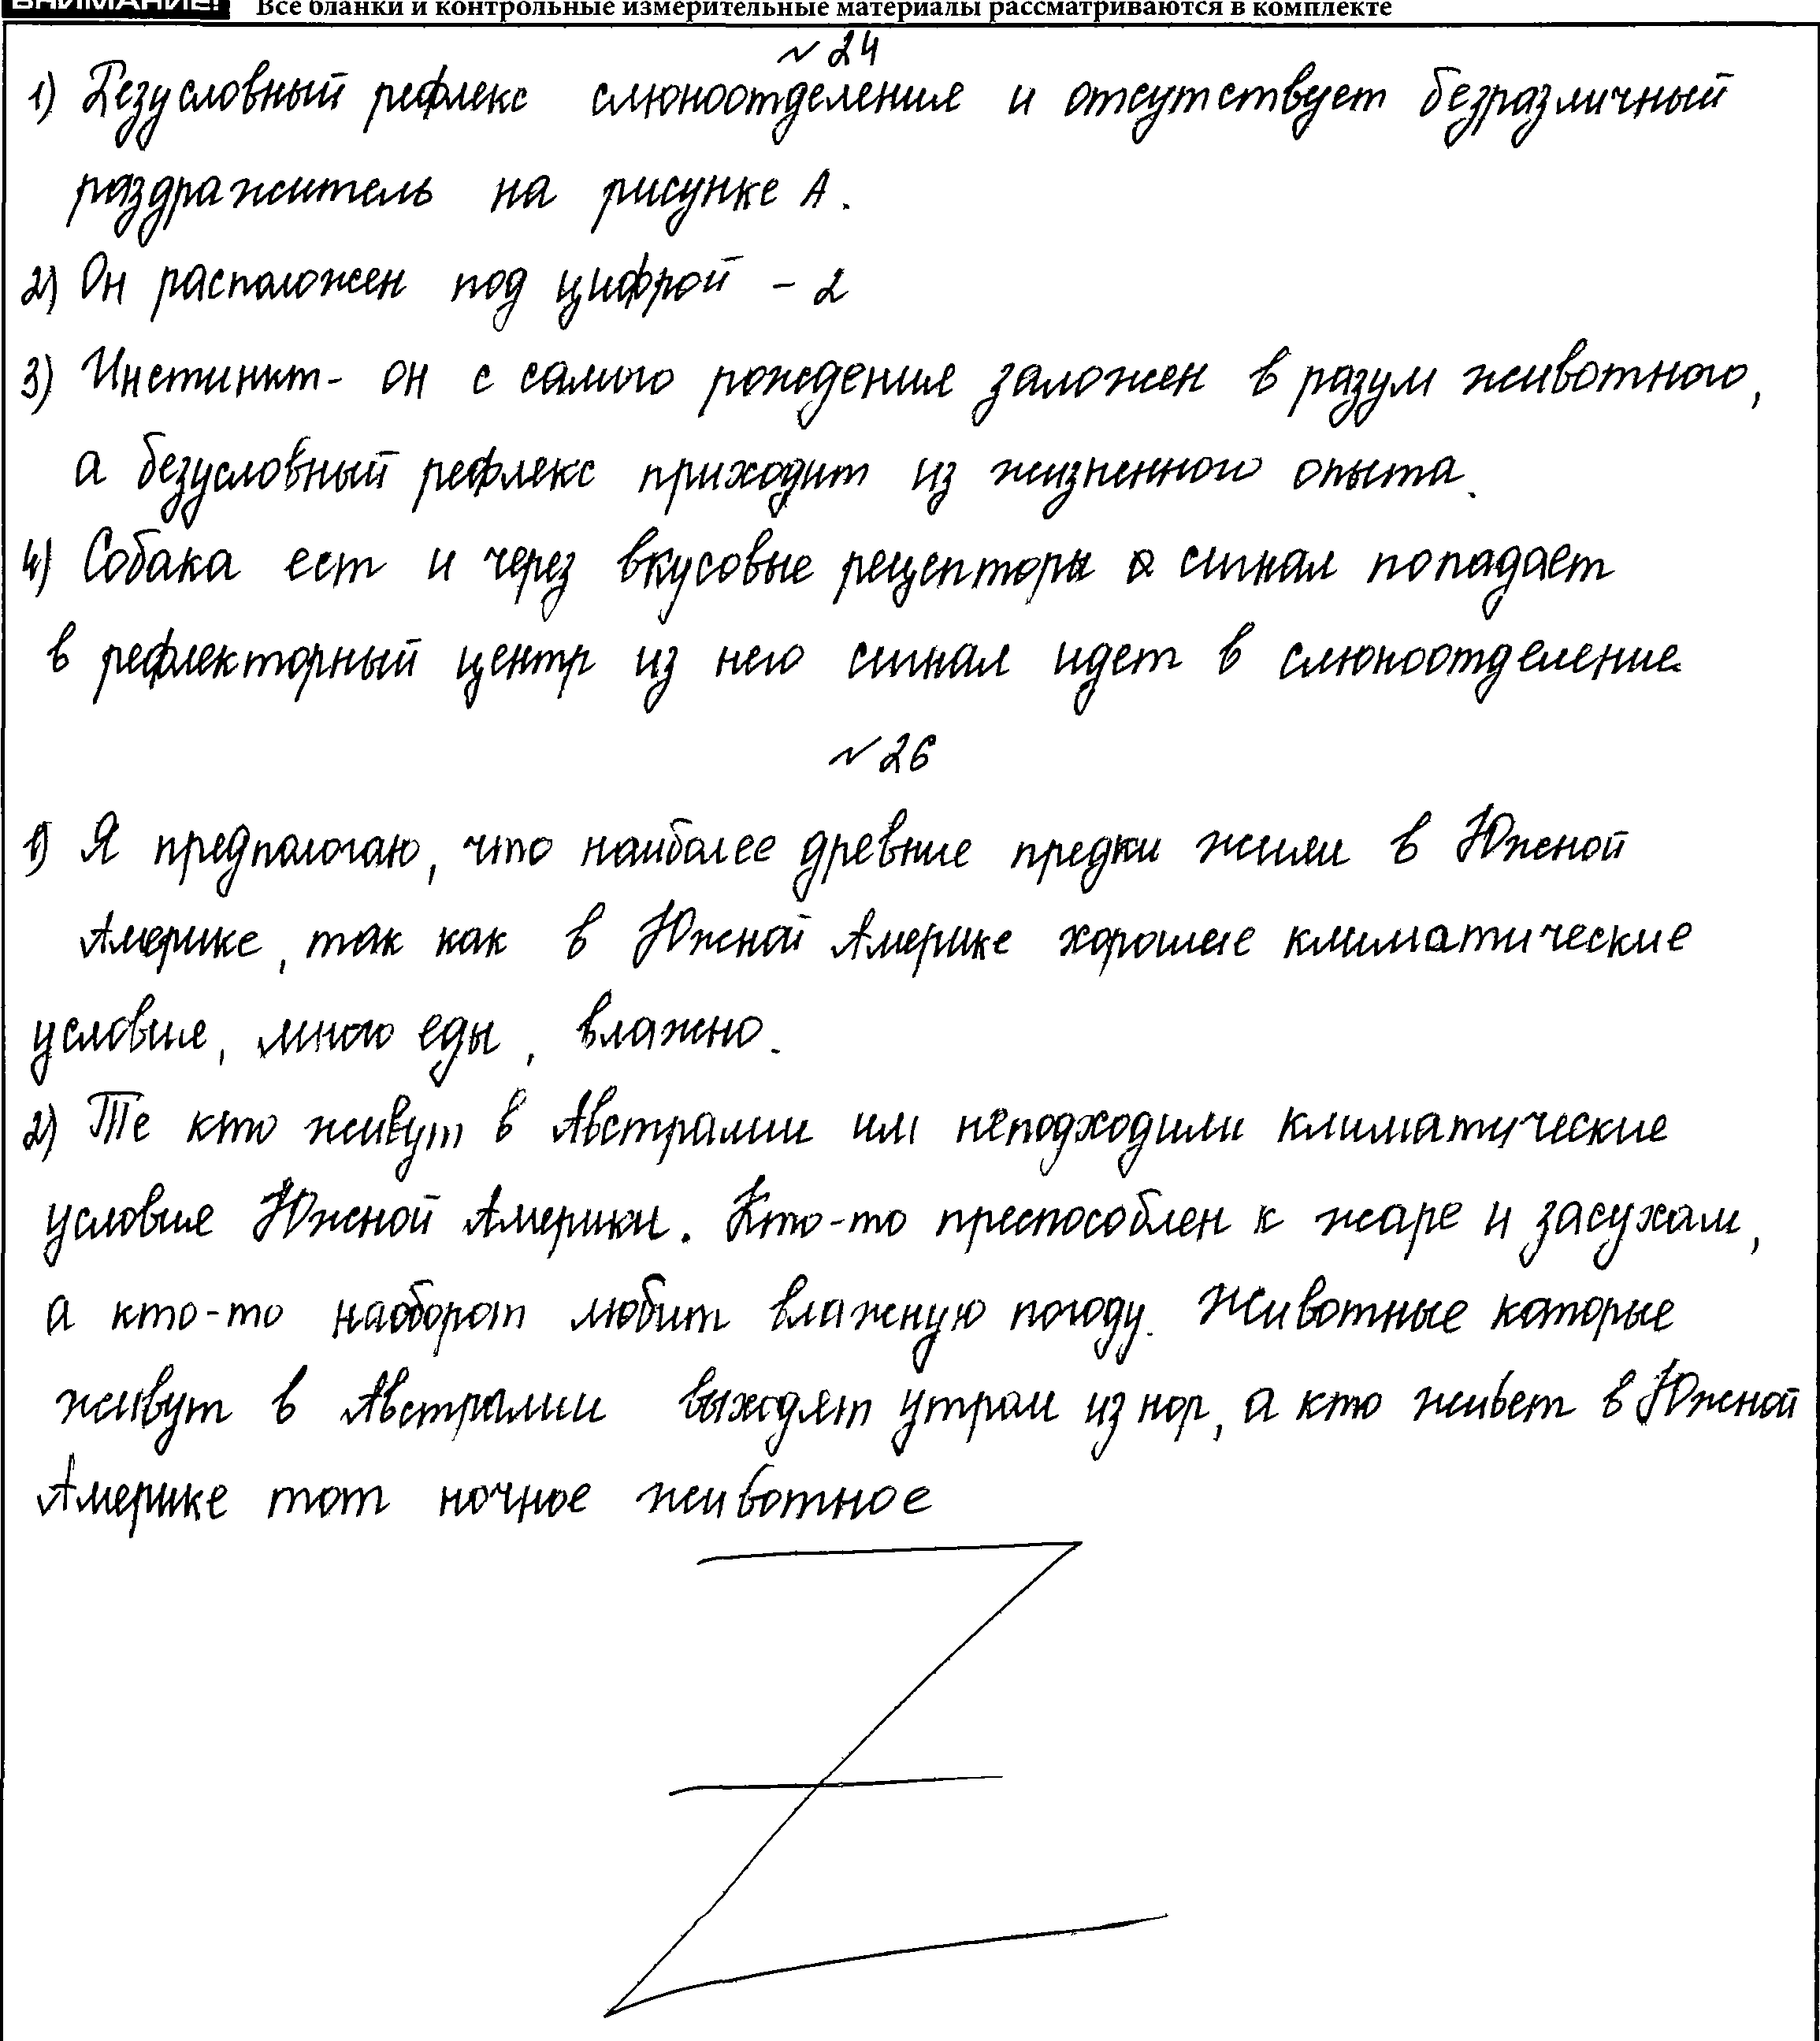 ВНИМАНИЕ! Все бланки и контрольные измерительные материалы рассматриваются в комплекте
№24
1) Безусловный рефлекс слюноотделения и отсутствует безразличный
раздражитель на рисунке А.
2) Он расположен под цифрой - 2
3) Инстинкт - он с самого рождения заложен в разум животного,
а безусловный рефлекс приходит из жизненного опыта.
4) Собака ест и через вкусовые рецепторы сигнал попадает
в рефлекторный центр из него сигнал идет в слюноотделение.
№26
1) Я предпологаю, что наиболее древние предки жили в Южной
Америке, так как в Южной Америке хорошие климатические
условие, много еды, влажно.
2) Те кто живут в Австралии им неподходили климатические
условие Южной Америки. Кто-то преспособлен к жаре и засухам,
а кто-то наоборот любит влажную погоду. Животные которые
живут в Австралии выходят утром из нор, а кто живет в Южной
Америке тот ночное животное